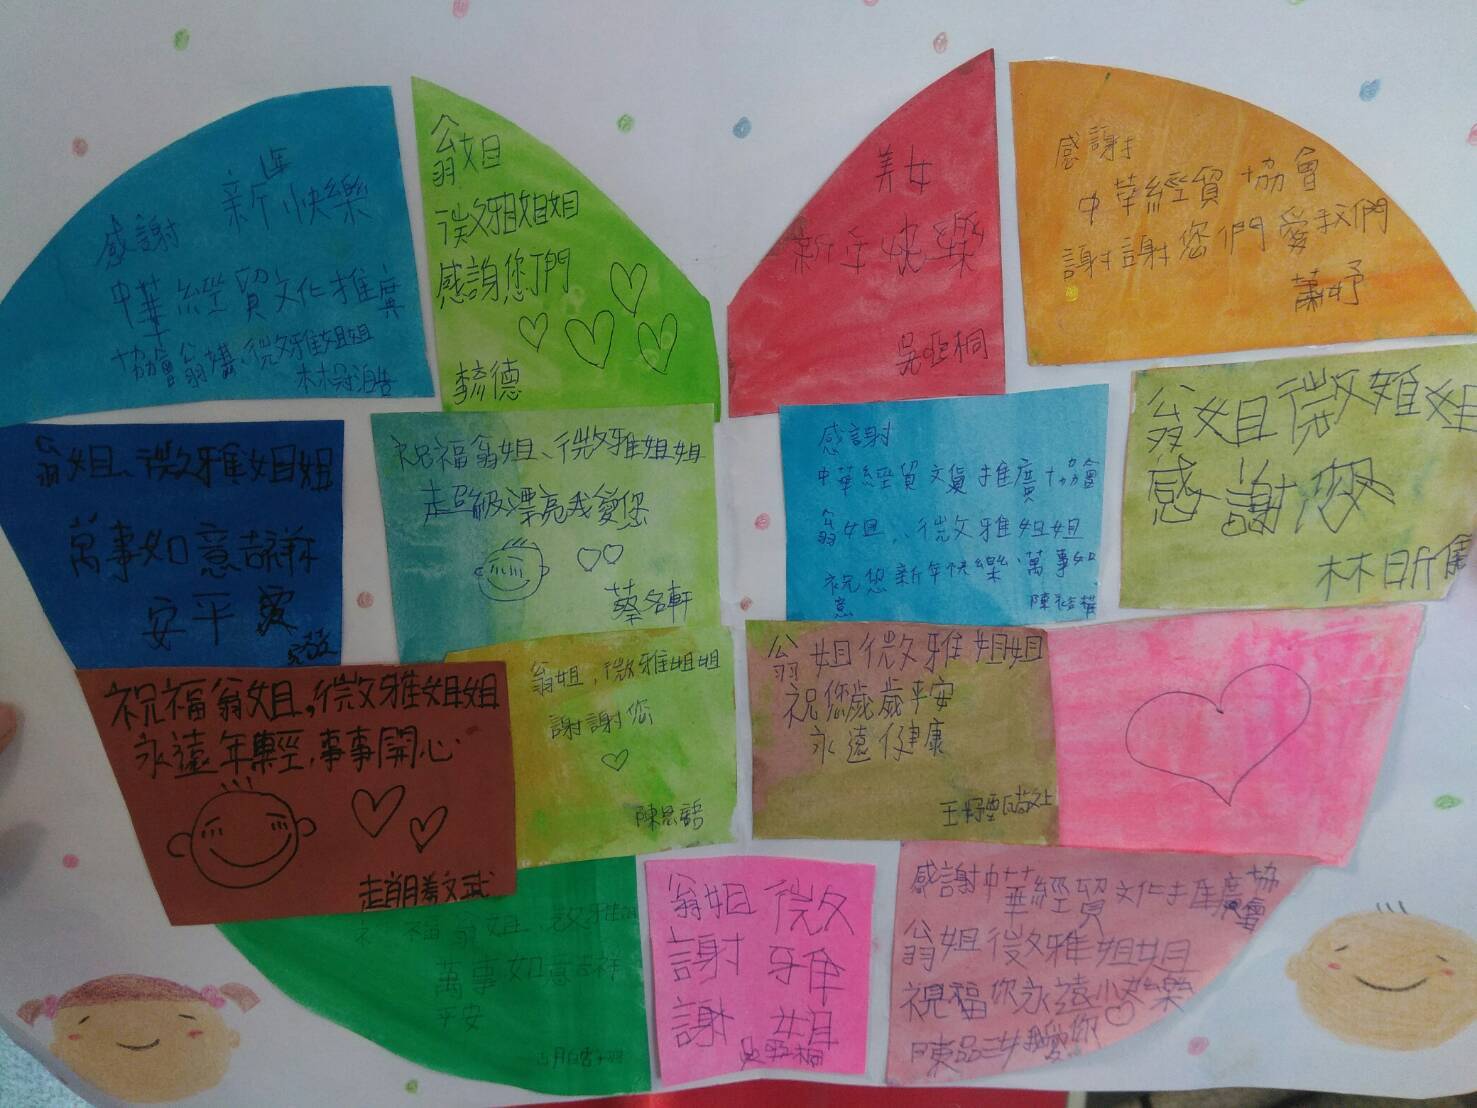 新年快樂
感謝
中華經貿文化推廣
協會翁媽、微雅姐姐
翁姐
微雅姐姐
感謝您們
李毓德
美女
新年快樂
吳亞桐
感謝
中華經貿協會
謝謝您們愛我們
蕭妤
翁姐、微雅姐姐
萬事如意吉祥
安平
祝福翁姐、微雅姐姐
超級漂亮我愛您
蔡名軒
感謝
中華經貿文貨推廣協會
翁姐、微雅姐姐
祝您新年快樂、萬事如
意
翁姐微雅姐
感謝您
林昕儒
祝福翁姐,微雅姐姐
永遠年輕,事事開心
趙翊喬文武
翁姐,微雅姐姐
謝謝您
陳思語
翁姐微雅姐姐
祝您歲歲平安
永遠健康
祝福翁姐 微雅
萬事如意吉祥
平安
翁姐微
謝雅
謝姐
吳亞桐
感謝中華經貿文化推廣協會
翁姐微雅姐姐
祝福你永遠快樂
愛你